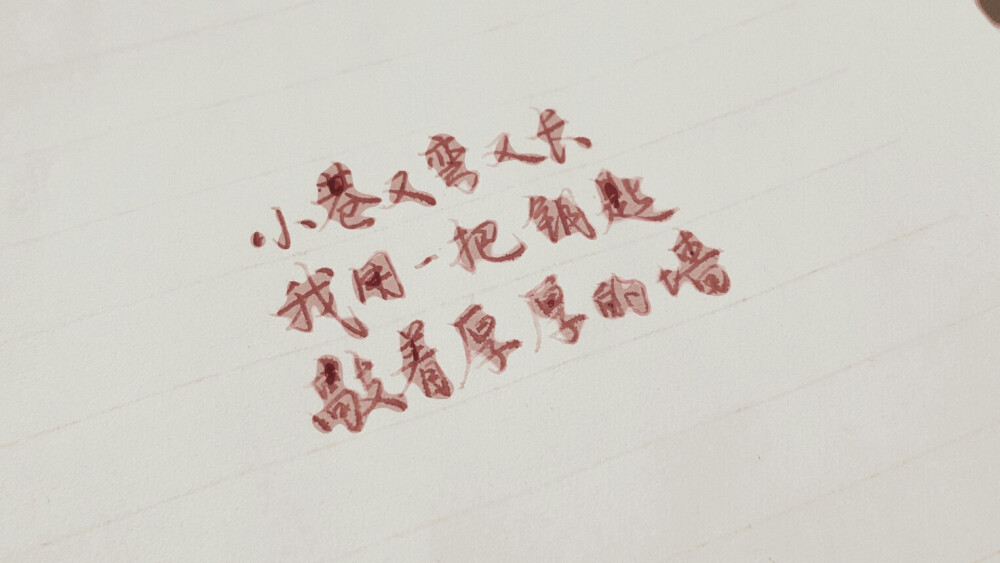 小巷又弯又长
我用一把钥匙
敲着厚厚的墙